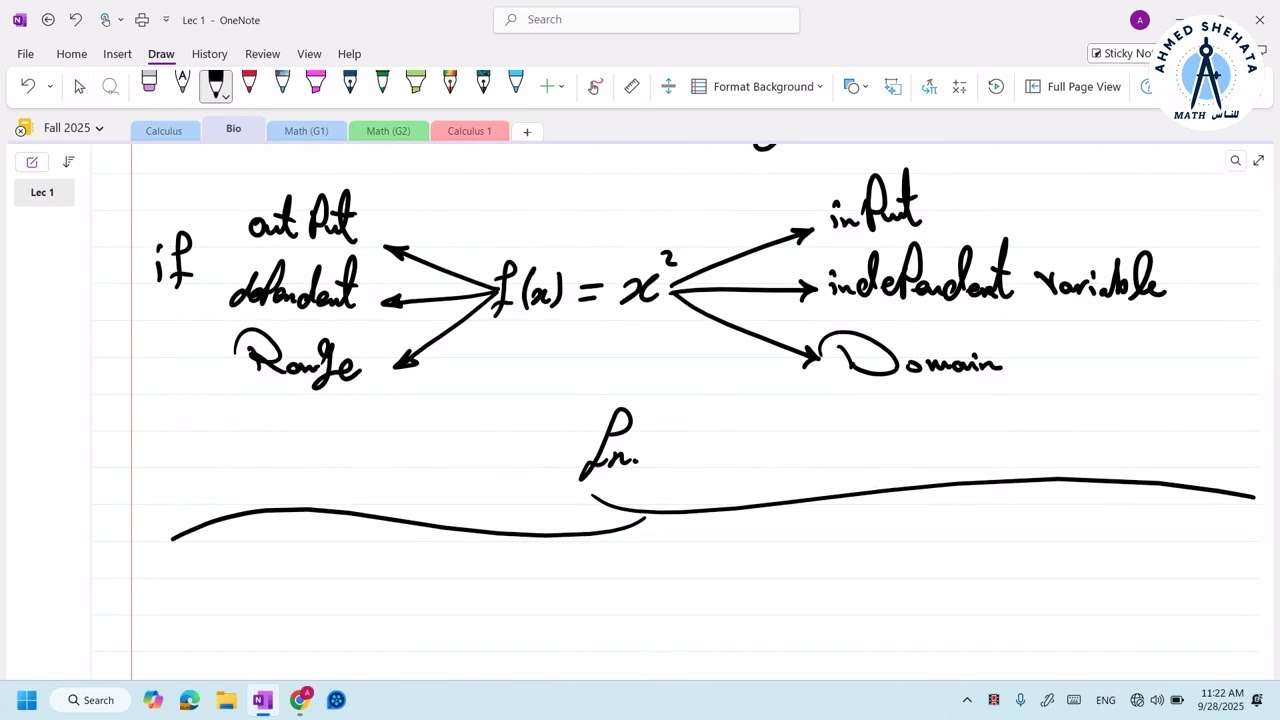 Lec 1 - OneNote
Search
A
File Home Insert Draw History Review View Help
Sticky No
Format Background
Full Page View
AHMED SHEHATA
MATH للناس
Fall 2025
Calculus Bio Math (G1) Math (G2) Calculus 1
Lec 1
if
out Put
dependent
Range
f(x) = x²
inPut
independent variable
Domain
fn.
Search
ENG
11:22 AM
9/28/2025